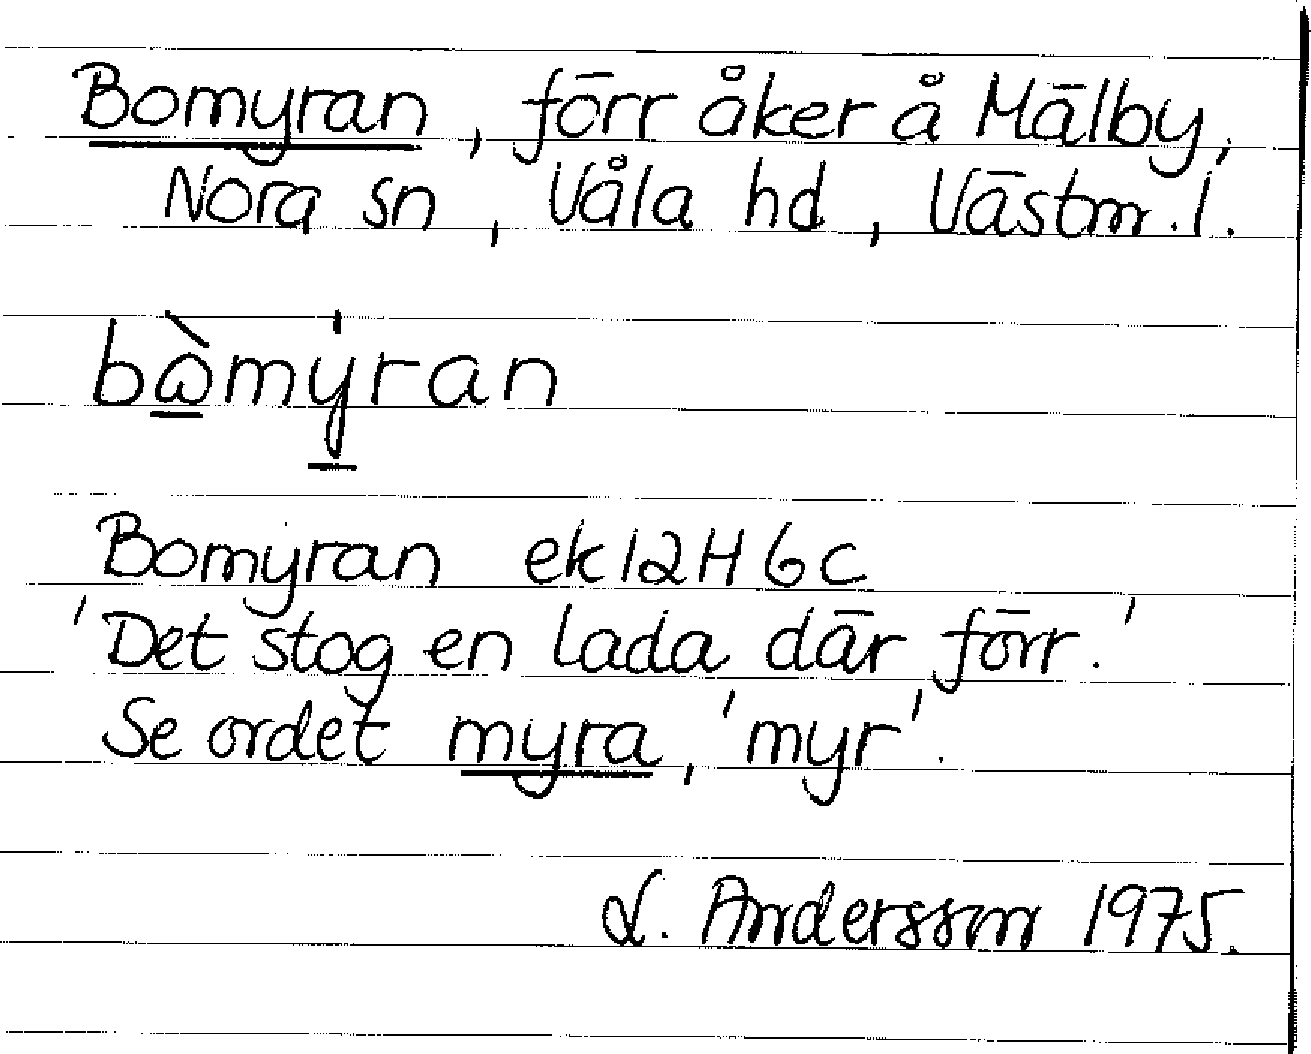 Bomyran, förr åker å Mälby,
Nora sn, Våla hd, Västm. l.
bὼmýran
Bomyran ek 12H 6c
'Det stog en lada där förr.'
Se ordet myra, 'myr'.
L. Andersson 1975.